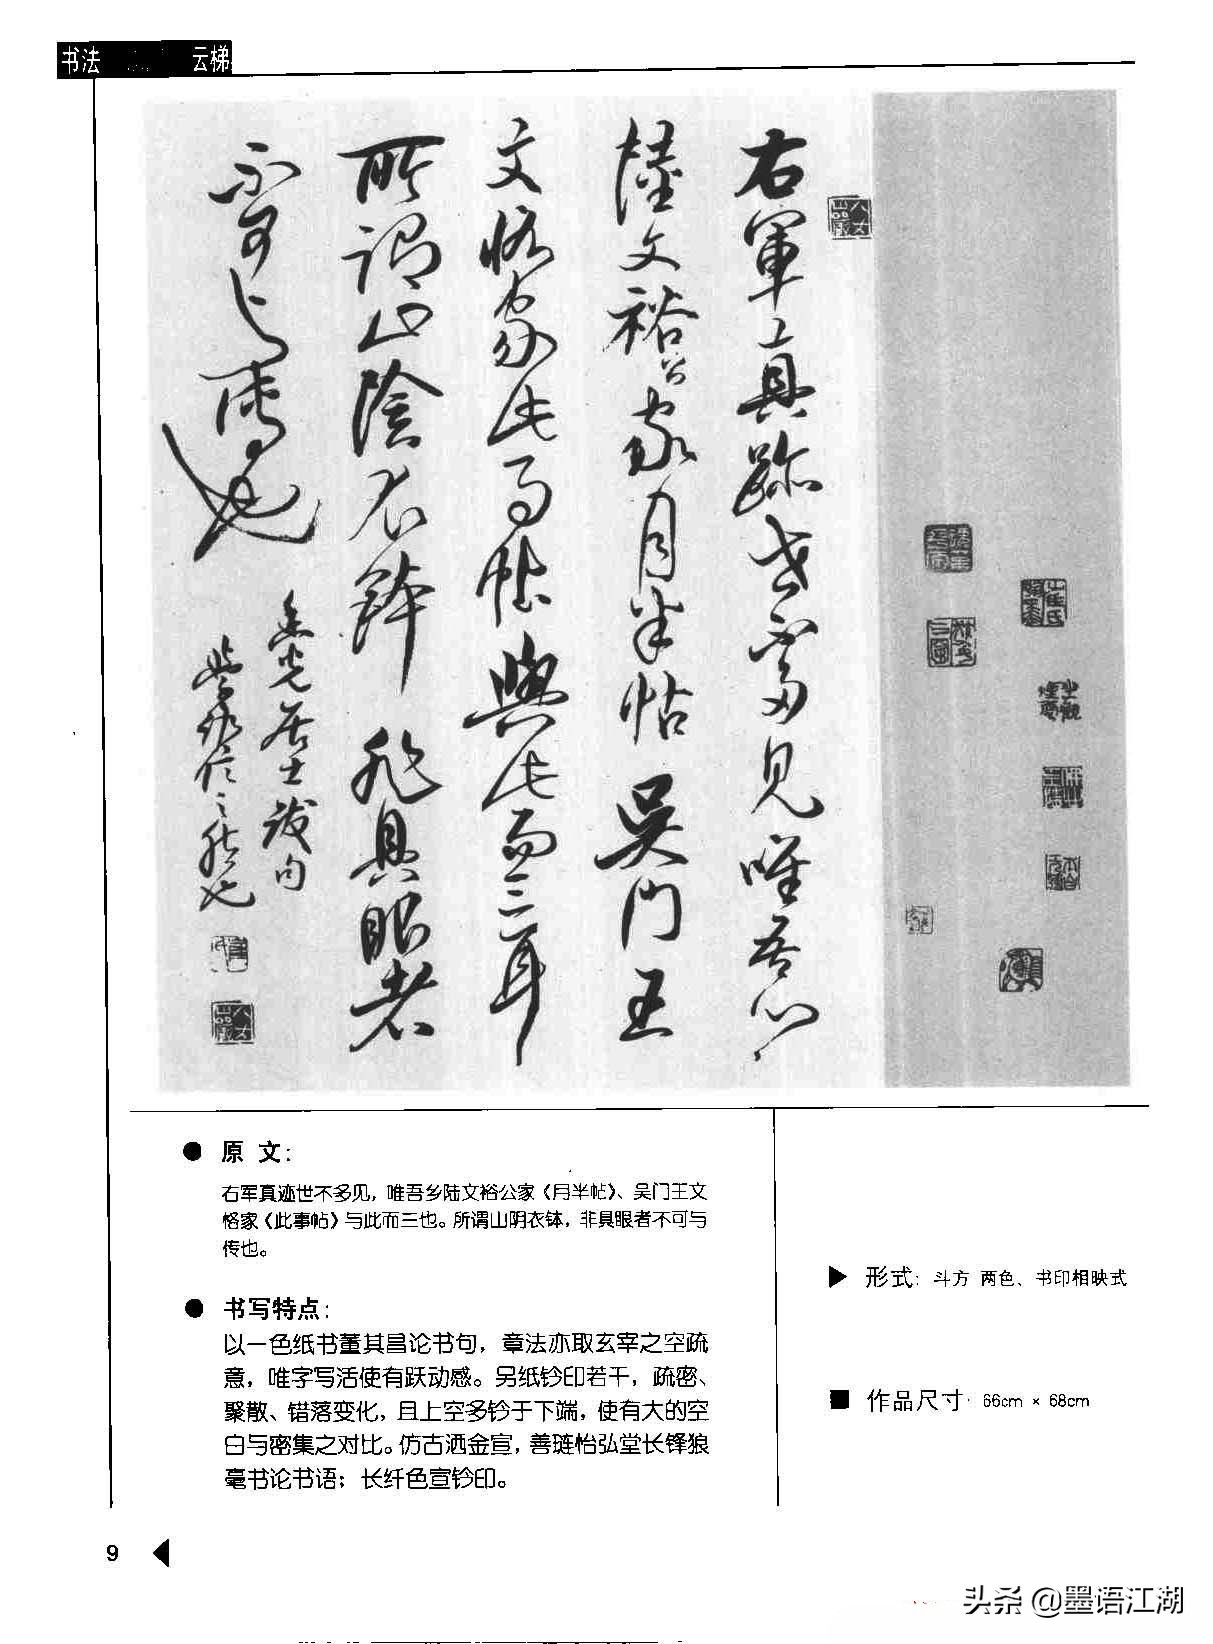 书法 云梯
右軍真跡世不多見唯吾乡
陸文裕公家月半帖吳門王
文恪家此事帖與此而三耳
所謂山陰衣鉢非具眼者
不可与傳也
玄光居士跋句
● 原 文：
右军真迹世不多见，唯吾乡陆文裕公家《月半帖》、吴门王文
恪家《此事帖》与此而三也。所谓山阴衣钵，非具眼者不可与
传也。
● 书写特点：
以一色纸书董其昌论书句，章法亦取玄宰之空疏
意，唯字写活使有跃动感。另纸钤印若干，疏密、
聚散、错落变化，且上空多钤于下端，使有大的空
白与密集之对比。仿古洒金宣，善琏怡弘堂长锋狼
毫书论书语；长纤色宣钤印。
▶ 形式：斗方 两色、书印相映式
■ 作品尺寸：66cm × 68cm
9
头条 @墨语江湖